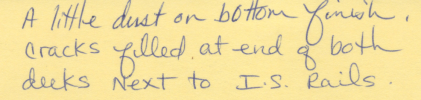 A little dust on bottom finish.
Cracks filled at end of both
decks Next to I.S. Rails.